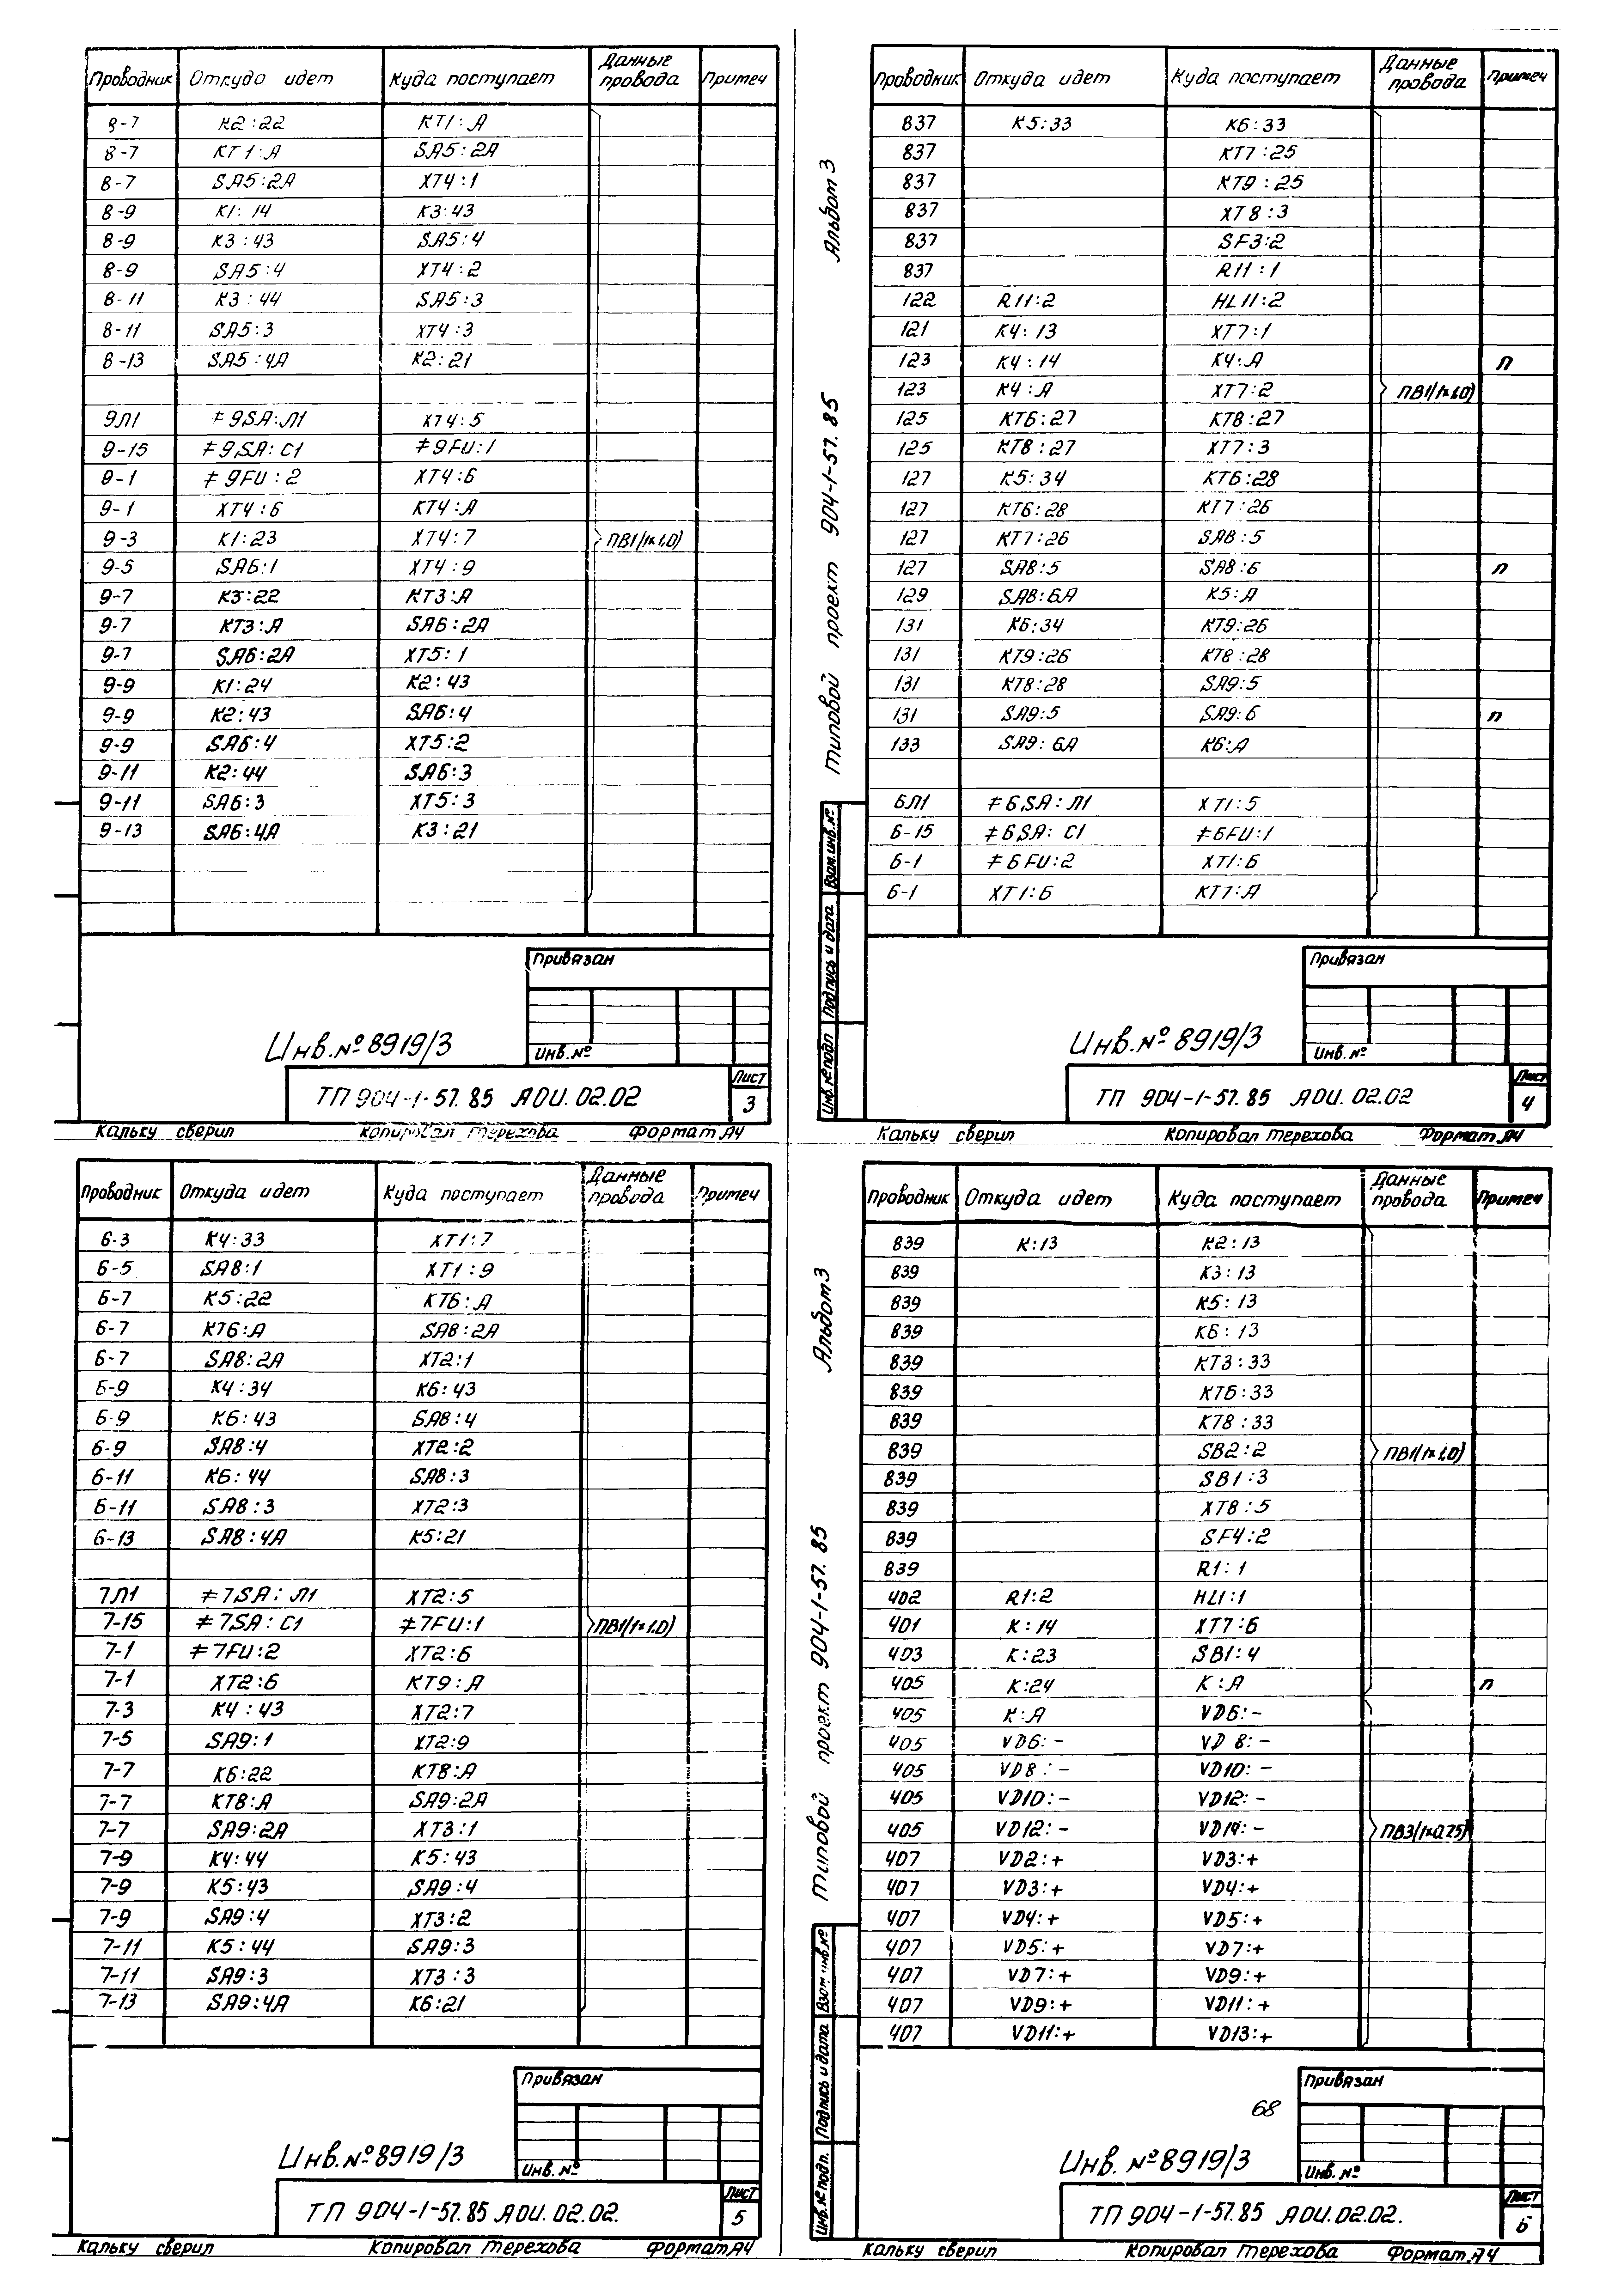 Проводник Откуда идет Куда поступает Данные провода Примеч
8-7 К2:22 КТ1:А
8-7 КТ1:А SA5:2А
8-7 SA5:2А ХТ4:1
8-9 К1:14 К3:43
8-9 К3:43 SA5:4
8-9 SA5:4 ХТ4:2
8-11 К3:44 SA5:3
8-11 SA5:3 ХТ4:3
8-13 SA5:4А К2:21
9Л1 ≠9SA:Л1 ХТ4:5
9-15 ≠9SA:С1 ≠9FU:1
9-1 ≠9FU:2 ХТ4:6
9-1 ХТ4:6 КТ4:А
9-3 К1:23 ХТ4:7 ПВ1(1×1,0)
9-5 SA6:1 ХТ4:9
9-7 К3:22 КТ3:А
9-7 КТ3:А SA6:2А
9-7 SA6:2А ХТ5:1
9-9 К1:24 К2:43
9-9 К2:43 SA6:4
9-9 SA6:4 ХТ5:2
9-11 К2:44 SA6:3
9-11 SA6:3 ХТ5:3
9-13 SA6:4А К3:21
Привязан
Инв.№
Инв.№8919/3
ТП 904-1-57.85 АОИ.02.02
Лист
3
Кальку сверил Копировал Терехова Формат А4
Альбом 3
Типовой проект 904-1-57.85
Проводник Откуда идет Куда поступает Данные провода Примеч
837 К5:33 К6:33
837 КТ7:25
837 КТ9:25
837 ХТ8:3
837 SF3:2
837 R11:1
122 R11:2 HL11:2
121 К4:13 ХТ7:1
123 К4:14 К4:А п
123 К4:А ХТ7:2 ПВ1(1×1,0)
125 КТ6:27 КТ8:27
125 КТ8:27 ХТ7:3
127 К5:34 КТ6:28
127 КТ6:28 КТ7:26
127 КТ7:26 SA8:5
127 SA8:5 SA8:6 п
129 SA8:6А К5:А
131 К6:34 КТ9:26
131 КТ9:26 КТ8:28
131 КТ8:28 SA9:5
131 SA9:5 SA9:6 п
133 SA9:6А К6:А
6Л1 ≠6SA:Л1 ХТ1:5
6-15 ≠6SA:С1 ≠6FU:1
6-1 ≠6FU:2 ХТ1:6
6-1 ХТ1:6 КТ7:А
Взам.инв.№
Подпись и дата
Инв.№подл
Привязан
Инв.№
Инв.№8919/3
ТП 904-1-57.85 АОИ.02.02
Лист
4
Кальку сверил Копировал Терехова Формат А4
Проводник Откуда идет Куда поступает Данные провода Примеч
6-3 К4:33 ХТ1:7
6-5 SA8:1 ХТ1:9
6-7 К5:22 КТ6:А
6-7 КТ6:А SA8:2А
6-7 SA8:2А ХТ2:1
6-9 К4:34 К6:43
6-9 К6:43 SA8:4
6-9 SA8:4 ХТ2:2
6-11 К6:44 SA8:3
6-11 SA8:3 ХТ2:3
6-13 SA8:4А К5:21
7Л1 ≠7SA:Л1 ХТ2:5
7-15 ≠7SA:С1 ≠7FU:1 ПВ1(1×1,0)
7-1 ≠7FU:2 ХТ2:6
7-1 ХТ2:6 КТ9:А
7-3 К4:43 ХТ2:7
7-5 SA9:1 ХТ2:9
7-7 К6:22 КТ8:А
7-7 КТ8:А SA9:2А
7-7 SA9:2А ХТ3:1
7-9 К4:44 К5:43
7-9 К5:43 SA9:4
7-9 SA9:4 ХТ3:2
7-11 К5:44 SA9:3
7-11 SA9:3 ХТ3:3
7-13 SA9:4А К6:21
Привязан
Инв.№
Инв.№8919/3
ТП 904-1-57.85 АОИ.02.02.
Лист
5
Кальку сверил Копировал Терехова Формат А4
Альбом 3
Типовой проект 904-1-57.85
Проводник Откуда идет Куда поступает Данные провода Примеч
839 К:13 К2:13
839 К3:13
839 К5:13
839 К6:13
839 КТ3:33
839 КТ6:33
839 КТ8:33
839 SB2:2 ПВ1(1×1,0)
839 SB1:3
839 ХТ8:5
839 SF4:2
839 R1:1
402 R1:2 HL1:1
401 К:14 ХТ7:6
403 К:23 SB1:4
405 К:24 К:А п
405 К:А VD6:-
405 VD6:- VD8:-
405 VD8:- VD10:-
405 VD10:- VD12:-
405 VD12:- VD14:- ПВ3(1×0,75)
407 VD2:+ VD3:+
407 VD3:+ VD4:+
407 VD4:+ VD5:+
407 VD5:+ VD7:+
407 VD7:+ VD9:+
407 VD9:+ VD11:+
407 VD11:+ VD13:+
Взам.инв.№
Подпись и дата
Инв.№подл.
Привязан
68
Инв.№
Инв.№8919/3
ТП 904-1-57.85 АОИ.02.02.
Лист
6
Кальку сверил Копировал Терехова Формат А4